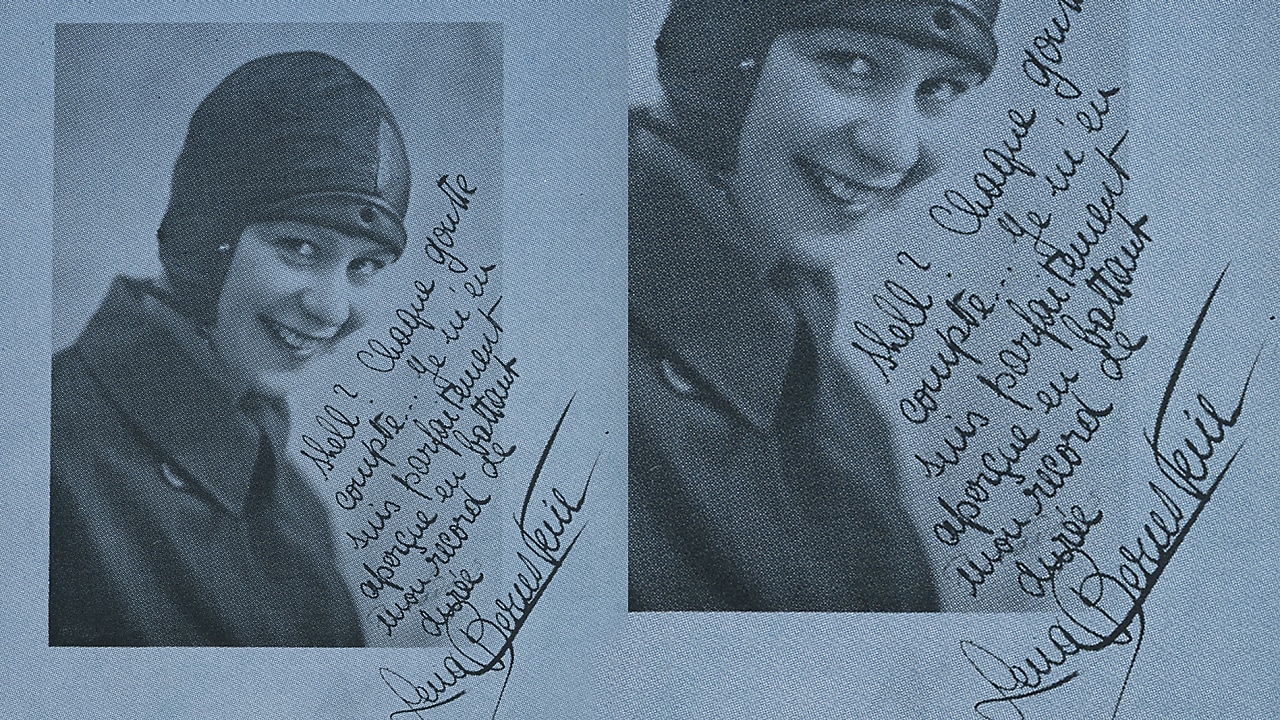 Shell ? Chaque goutte
compte... Je m'en
suis parfaitement
aperçue en battant
mon record de
durée
Lena Bernstein
Shell ? Chaque goutte
compte... Je m'en
suis parfaitement
aperçue en battant
mon record de
durée
Lena Bernstein